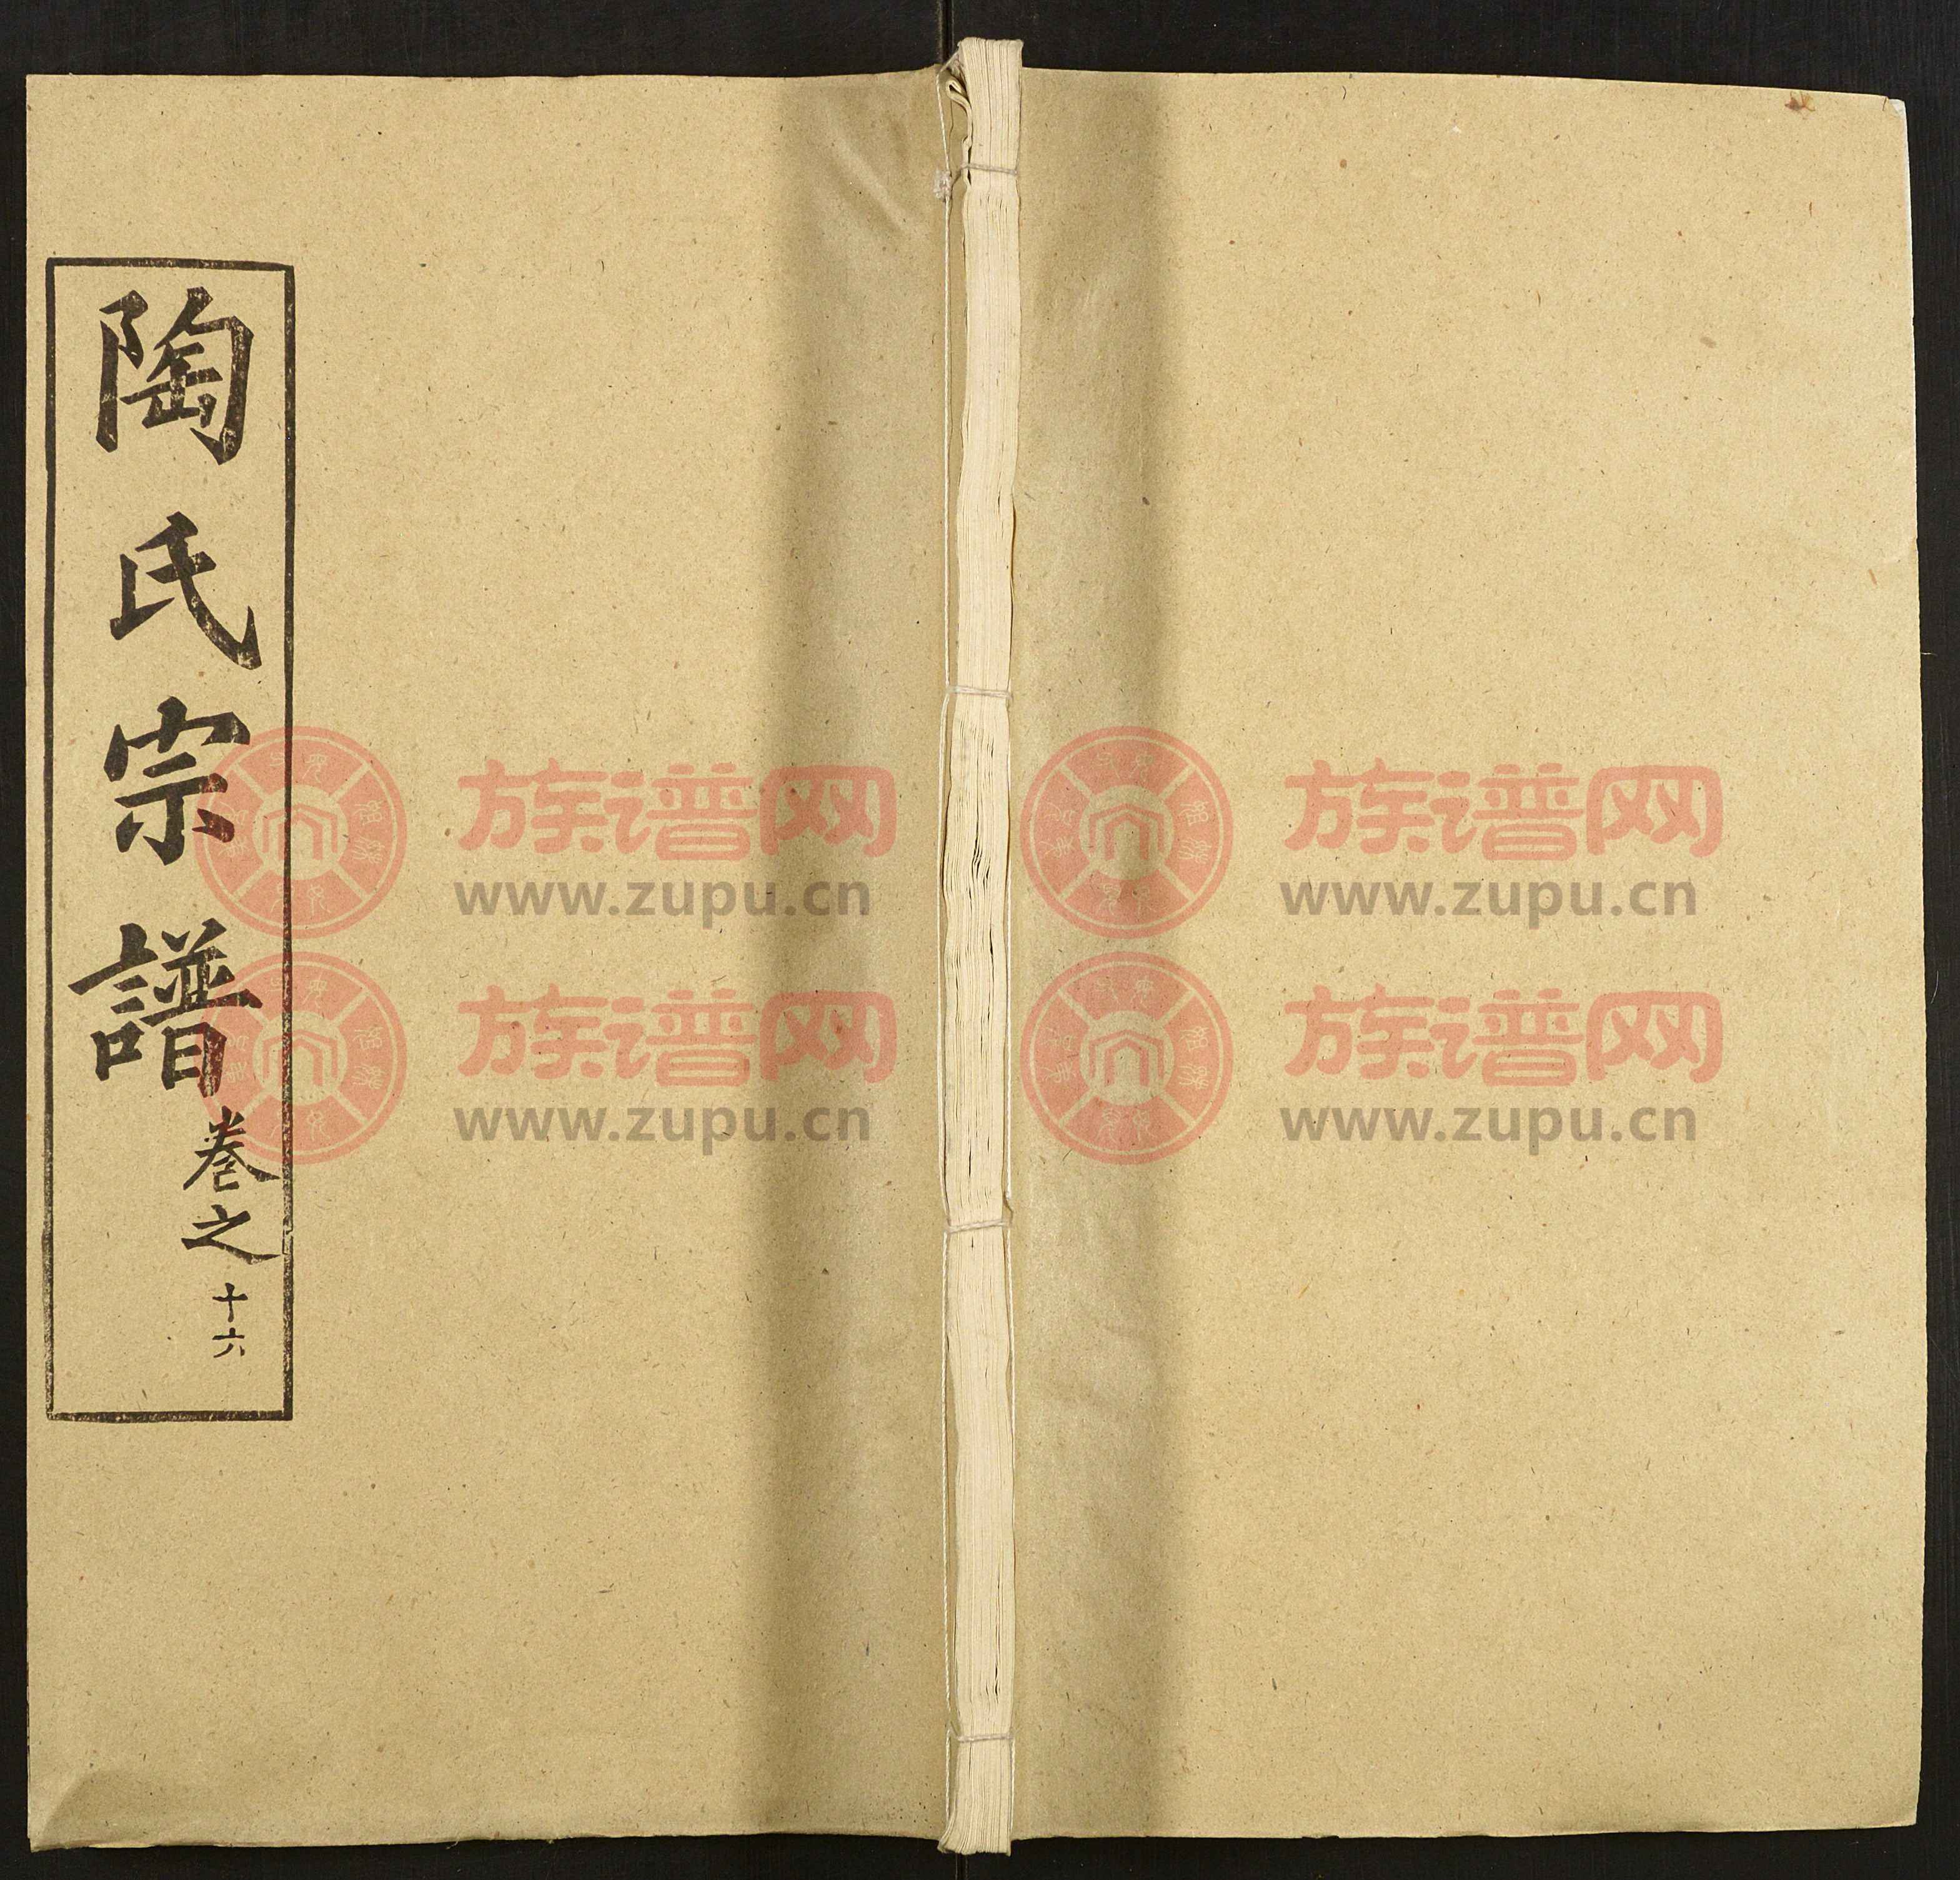 陶氏宗譜
卷之十六
族谱网
www.zupu.cn
族谱网
www.zupu.cn
族谱网
www.zupu.cn
族谱网
www.zupu.cn